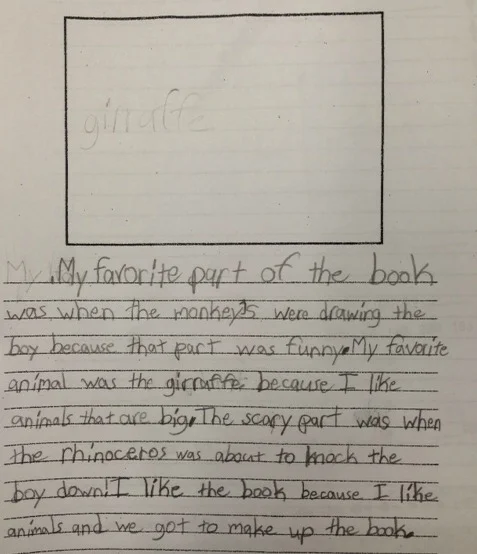 girraffe
My My favorite part of the book
was when the monkeys were drawing the
boy because that part was funny. My favorite
animal was the girraffe because I like
animals that are big. The scary part was when
the rhinoceros was about to knock the
boy down! I like the book because I like
animals and we got to make up the book.